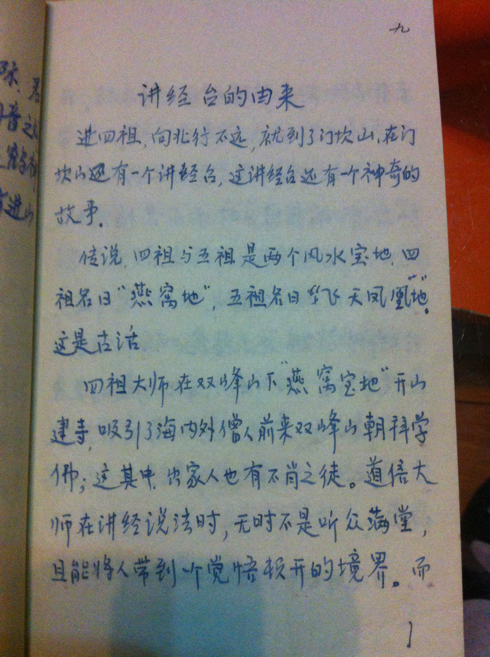 九
讲经台的由来
进四祖,向北行不远,就到了门坎山,在门
坎山还有一个讲经台,这讲经台还有一个神奇的
故事.
传说,四祖与五祖是两个风水宝地,四
祖名曰"燕窝地",五祖名曰"飞天凤凰地"。
这是古话
四祖大师在双峰山下"燕窝宝地"开山
建寺,吸引了海内外僧人前来双峰山朝拜学
佛;这其中,出家人也有不肖之徒。道信大
师在讲经说法时,无时不是听众满堂,
且能将人带到个觉悟顿开的境界。而
1